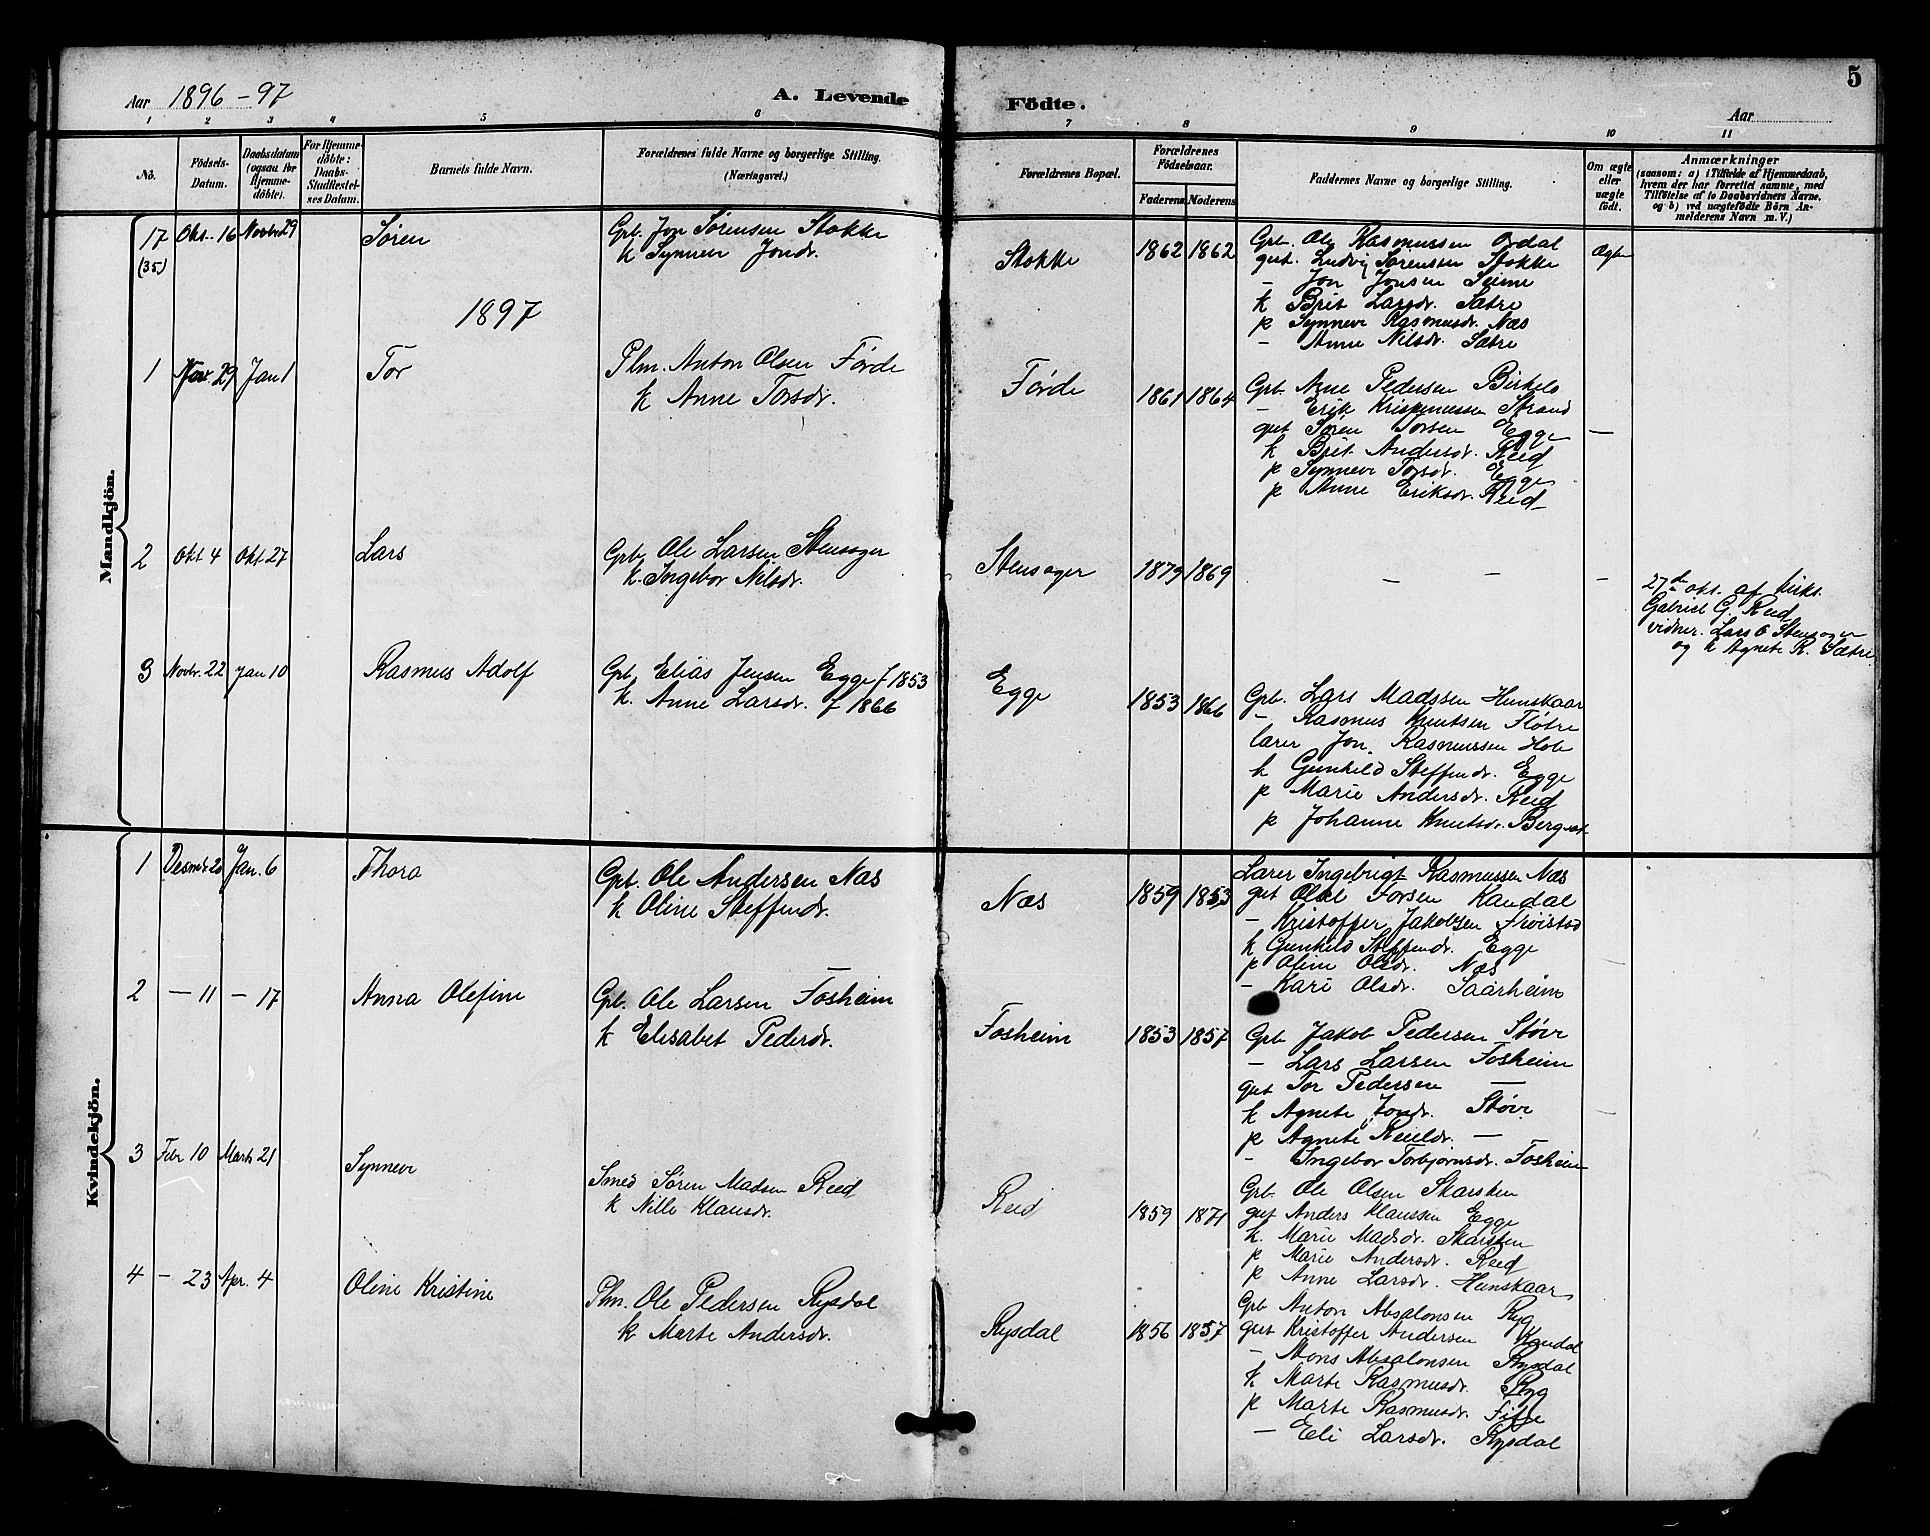 5
Aar 1896-97
A. Levende Födte.
Aar
1 2 3 4 5 6 7 8 9 10 11
No.
Födsels-Datum.
Daabsdatum (ogsaa for Hjemmedöbte).
For Hjemmedöbte: Daabs-Stadfæstelses Datum.
Barnets fulde Navn.
Forældrenes fulde Navne og borgerlige Stilling. (Næringsvei.)
Forældrenes Bopæl.
Forældrenes Födselsaar.
Faderens Moderens
Faddernes Navne og borgerlige Stilling.
Om ægte eller uægte födt.
Anmærkninger
(saasom: a) i Tilfælde af Hjemmedaab, hvem der har forrettet samme, med Tilföielse af to Daabsvidners Navne, og b) ved uægtefödte Börn Anmelderens Navn m. V.)
Mandkjön.
17 (35) Okt. 16 Novbr 29 Søren
Grb. Jon Sørensen Stokke
k Synneve Jonsdr.
Stokke 1862 1862
Grb. Ole Rasmussen Ordal
gut. Ludvig Sørensen Stokke
- Jon Jonsen Seime
k Brit Larsdr. Sætre
p Synneve Rasmusdr. Næs
- Anne Nilsdr. Sætre
Ægte
1897
1 Nov. 29 Jan 1 Tor
Plm. Anton Olsen Førde
k Anne Torsdr.
Førde 1861 1864
Grb. Pedersen Birkelo
- Erik Strand
gut Søren Torsen Egge
k Brit Andersdr. Reed
p Synneve Torsdr. Egge
p Anne Eriksdr. Reed
—
2 Okt 4 Okt. 27 Lars
Grb. Ole Larsen Stensager
k. Ingebor Nilsdr.
Stensager 1879 1869
— — —
27de okt. af kirks.
Gabriel G. Reed
vidner. Lars O Stensager
og k Agnete R. Sætre
3 Novbr. 22 Jan 10 Rasmus Adolf
Grb. Elias Jensen Egge f 1853
k. Anne Larsdr. f 1866
Egge 1853 1866
Grb. Lars Madssen Hunskaar
- Rasmus Knutsen Fløtre
lærer Jon Rasmussen Hole
k Gunhild Steffendr. Egge
p Marie Andersdr. Reed
p Johanne Knutsdr. Bergset
Kvindekjön.
1 Desmbr 20 Jan. 6 Thora
Grb. Ole Andersen Næs
k Oline Steffendr.
Næs 1859 1853
Lærer Ingebrigt Rasmussen Næs
gut Torsen Kandal
- Kristoffer Jakobsen
k Gunhild Steffendr. Egge
p Oline Olsdr. Næs
- Kari Olsdr. Saarheim
2 — 11 — 17 Anna Olefine
Grb. Ole Larsen Fosheim
k Elisabet Pedersdr.
Fosheim 1853 1857
Grb Jakob Pedersen Støve
- Lars Larsen Fosheim
gut Tor Pedersen —
k Agnete Jonsdr. Støve
p Agnete —
- Ingebor Torbjørnsdr. Fosheim
3 Febr 10 Marts 21 Synneve
Smed Søren Madsen Reed
k Nille Klausdr.
Reed 1859 1871
Grb. Ole Olsen Skarsten
gut Anders Klaussen Egge
k. Marie Madsdr. Skarsten
p Marie Andersdr. Reed
p Anne Larsdr. Hunskaar
4 — 23 Apr. 4 Oline Kristine
Plm. Ole Pedersen Rysdal
k Marte Andersdr.
Rysdal 1856 1857
Grb Anton Absalonsen Ryg
gut Kristoffer Andersen Kandal
- Mons Absalonsen Rysdal
k Marte Rasmusdr. Ryg
p Marte Rasmusdr. Fitje
- Eli Larsdr. Rysdal